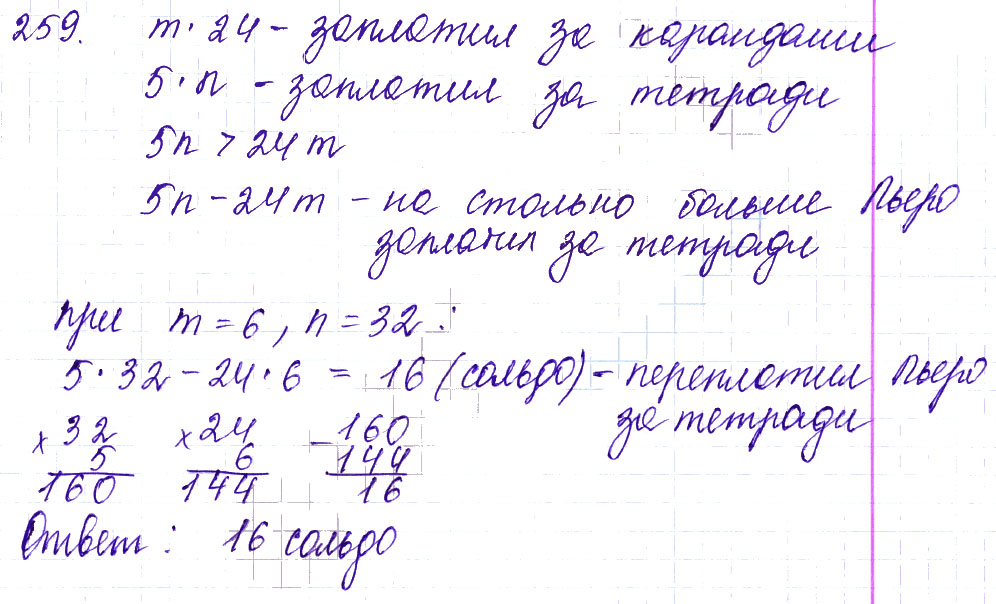 259. m · 24 – заплатил за карандаши
5 · n – заплатил за тетради
5n > 24m
5n – 24m – на столько больше Пьеро
заплатил за тетради
при m = 6, n = 32 :
5 · 32 – 24 · 6 = 16 (сольдо) – переплатил Пьеро
за тетради
× 32 × 24 – 160
5 6 144
160 144 16
Ответ : 16 сольдо